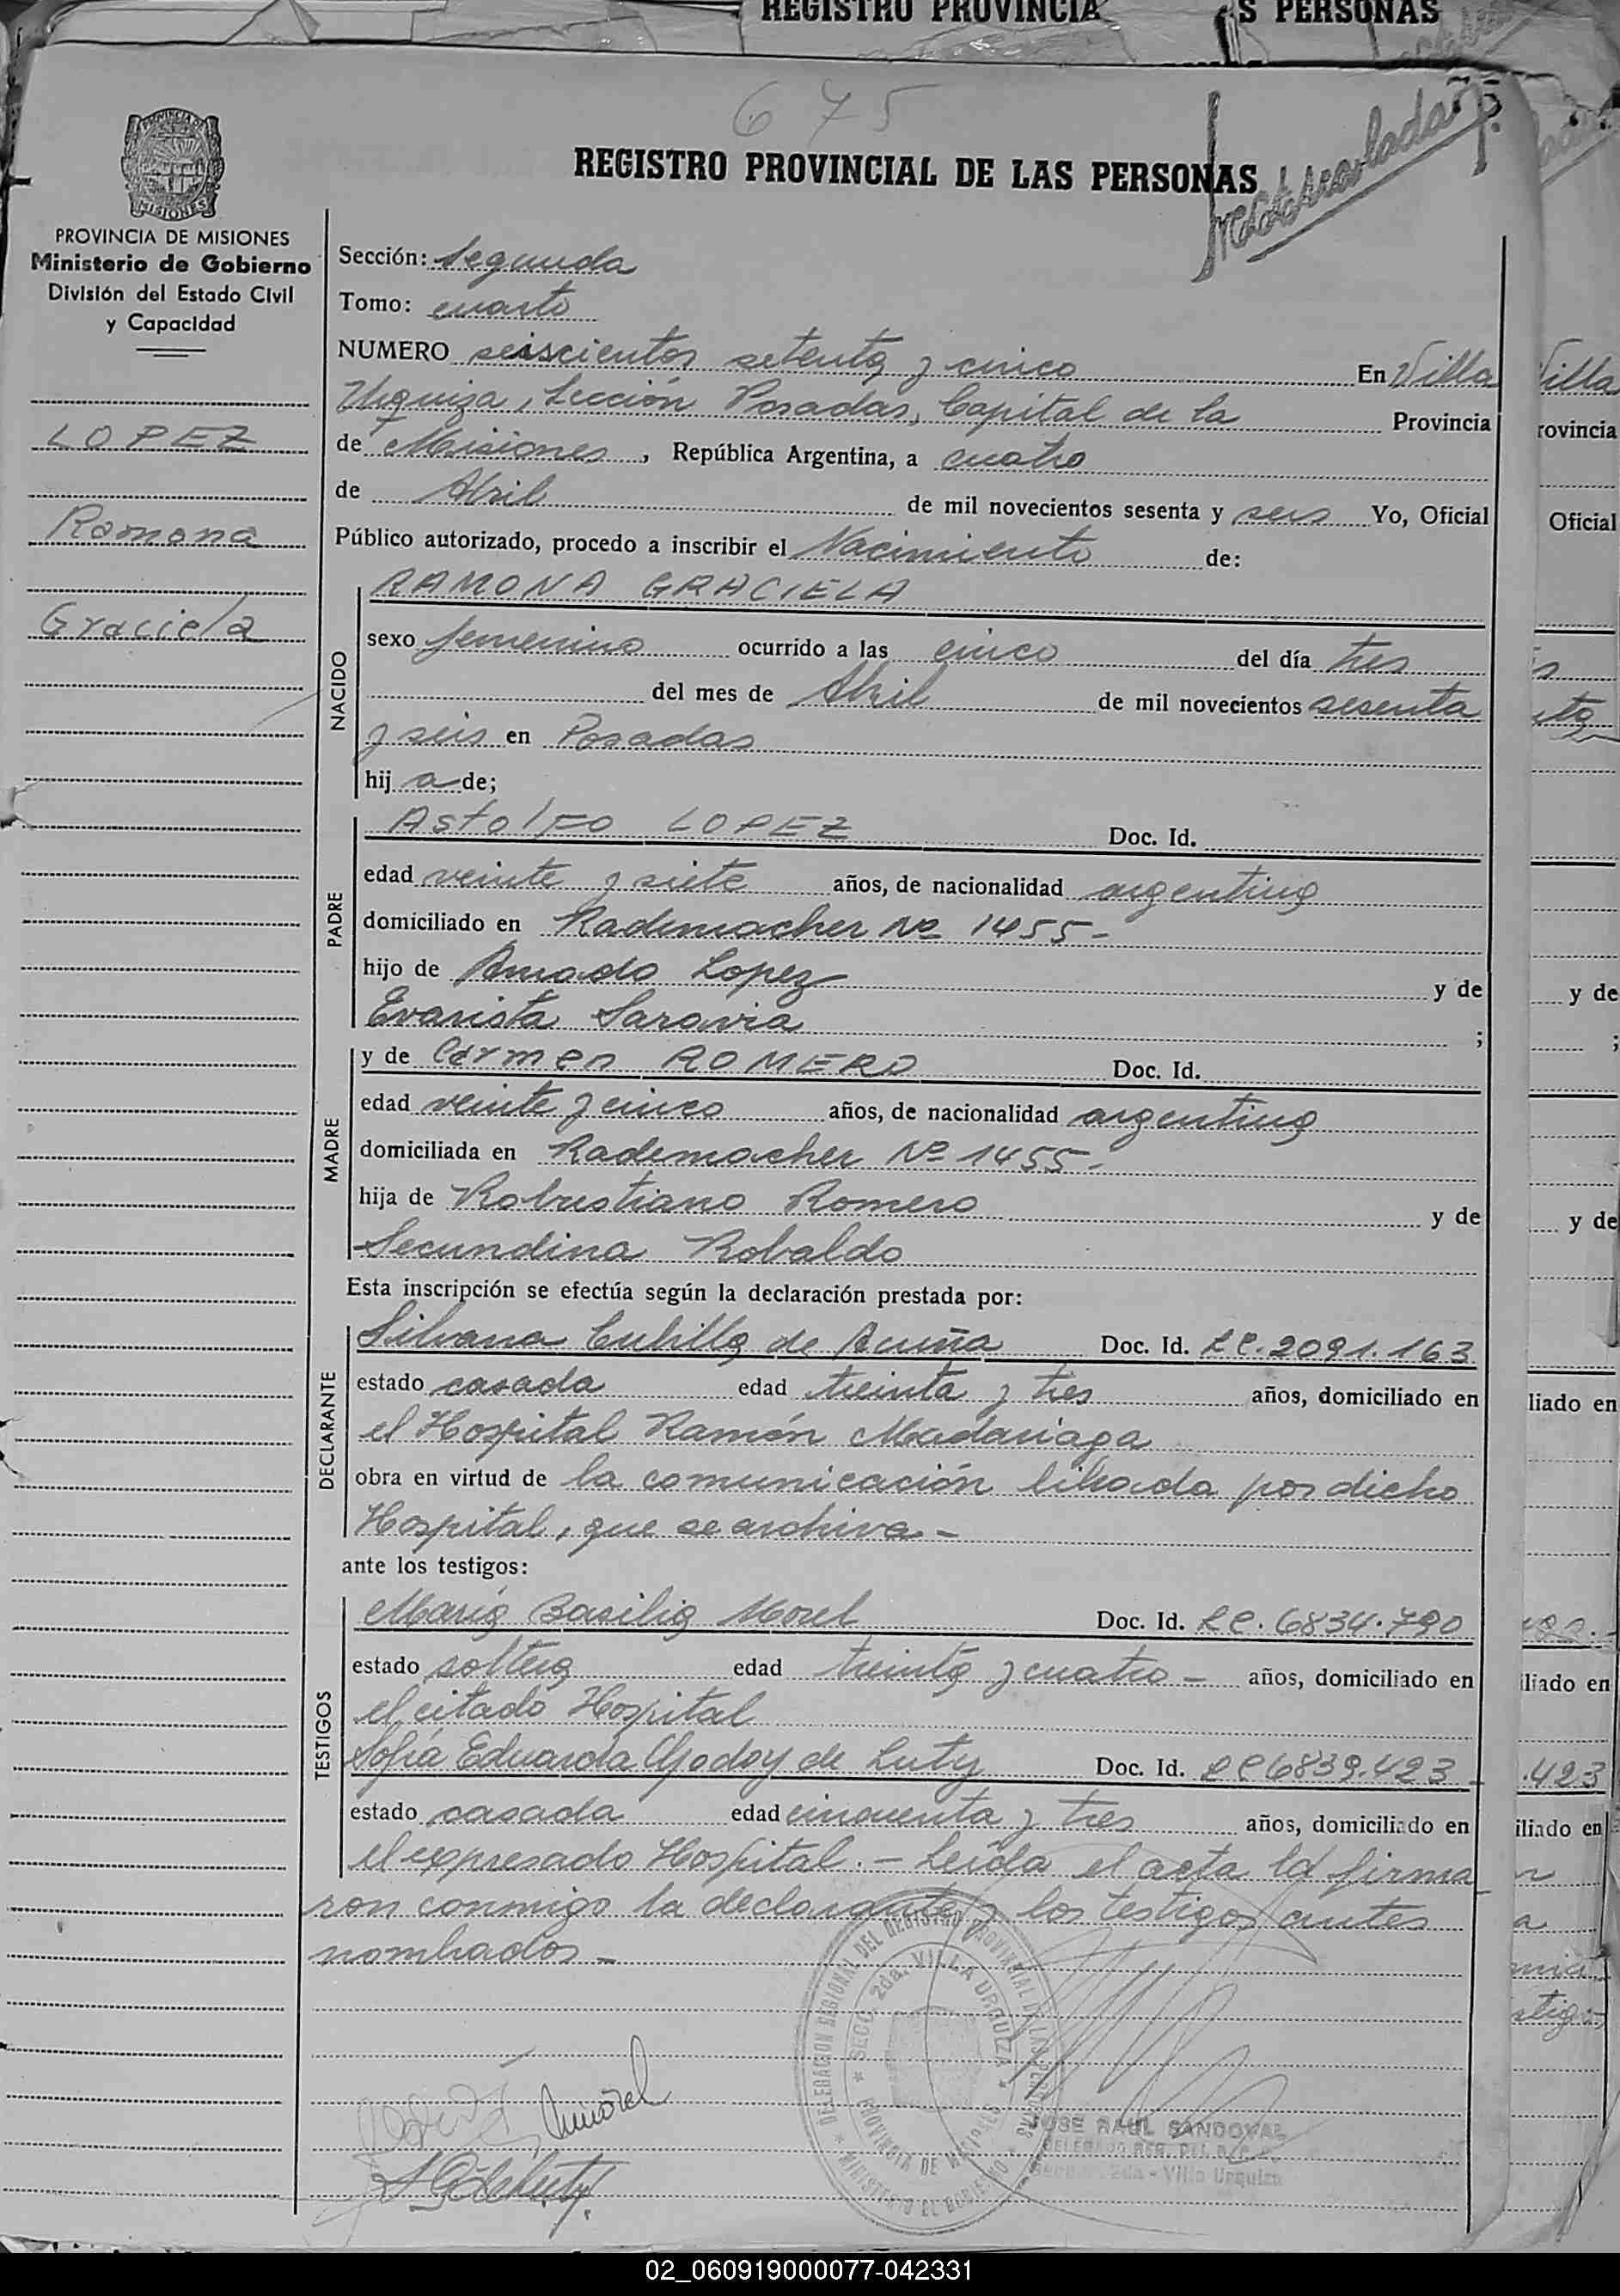 REGISTRO PROVINCIA S PERSONAS
675
75
REGISTRO PROVINCIAL DE LAS PERSONAS
MISIONES
PROVINCIA DE MISIONES
Ministerio de Gobierno
División del Estado Civil
y Capacidad
LOPEZ
Ramona
Graciela
Sección: Segunda
Tomo: cuarto
NUMERO seiscientos setenta y cinco En Villa
Urquiza, Sección Posadas, Capital de la Provincia
de Misiones, República Argentina, a cuatro
de Abril de mil novecientos sesenta y seis Yo, Oficial
Público autorizado, procedo a inscribir el Nacimiento de:
RAMONA GRACIELA
NACIDO
sexo femenino ocurrido a las cinco del día tres
del mes de Abril de mil novecientos sesenta
y seis en Posadas
hij a de;
Astolfo LOPEZ Doc. Id.
PADRE
edad veinte y siete años, de nacionalidad argentina
domiciliado en Rademacher Nº 1455-
hijo de Amado Lopez y de
Evarista Saravia ;
MADRE
y de Carmen ROMERO Doc. Id.
edad veinte y cinco años, de nacionalidad argentina
domiciliada en Rademacher Nº 1455-
hija de Robustiano Romero y de
Secundina Robaldo
Esta inscripción se efectúa según la declaración prestada por:
DECLARANTE
Silvana Cubilla de Acuña Doc. Id. LC. 2091.163
estado casada edad treinta y tres años, domiciliado en
el Hospital Ramón Madariaga
obra en virtud de la comunicación librada por dicho
Hospital, que se archiva.-
ante los testigos:
TESTIGOS
María Basilia Morel Doc. Id. LC. 6834.790
estado soltera edad treinta y cuatro - años, domiciliado en
el citado Hospital
Sofía Eduarda Godoy de Luty Doc. Id. LC 6839.423-
estado casada edad cincuenta y tres años, domiciliado en
el expresado Hospital.- Leída el acta la firma
ron conmigo la declarante y los testigos antes
nombrados-
DELEGACION REGIONAL DEL REGISTRO PROVINCIAL DE LAS PERSONAS
SECC. 2da. VILLA URQUIZA
PROVINCIA DE MISIONES
MINISTERIO DE GOBIERNO
JOSE RAUL SANDOVAL
DELEGADO REG. DEL R. P.
2da - Villa Urquiza
Villa
rovincia
Oficial
y de
;
y de
liado en
iliado en
.423
iliado en
02_060919000077-042331